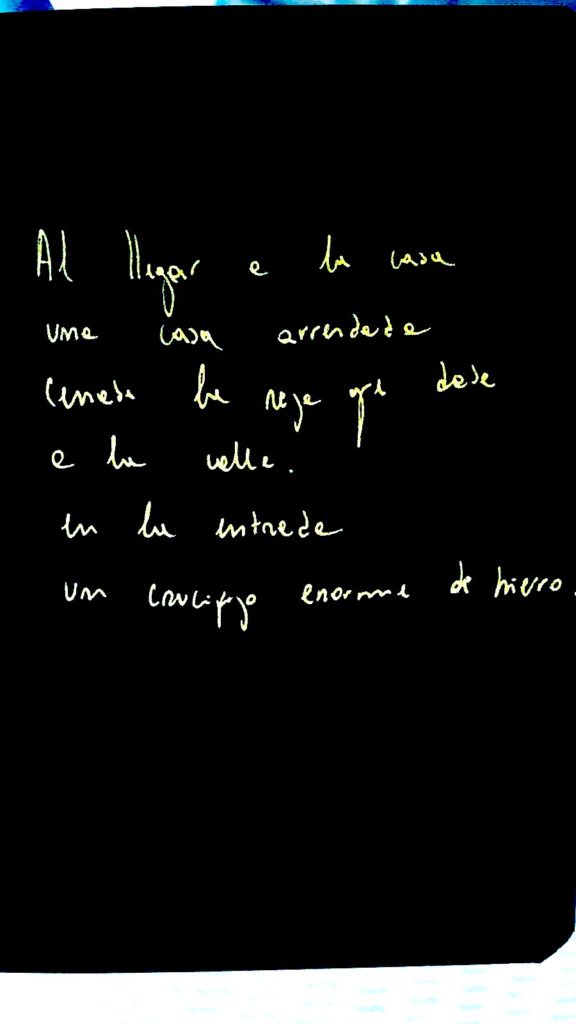 Al llegar a la casa
una casa arrendada
la reja que daba
a la calle.
en la entrada
un crucifijo enorme de hierro.